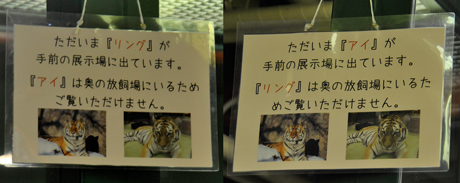 ただいま『リング』が
手前の展示場に出ています。
『アイ』は奥の放飼場にいるため
ご覧いただけません。
ただいま『アイ』が
手前の展示場に出ています。
『リング』は奥の放飼場にいるた
めご覧いただけません。